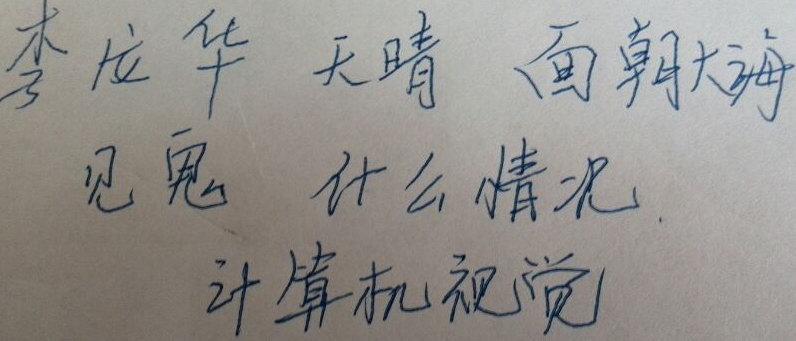 李应华 天晴 面朝大海
见鬼 什么情况.
计算机视觉